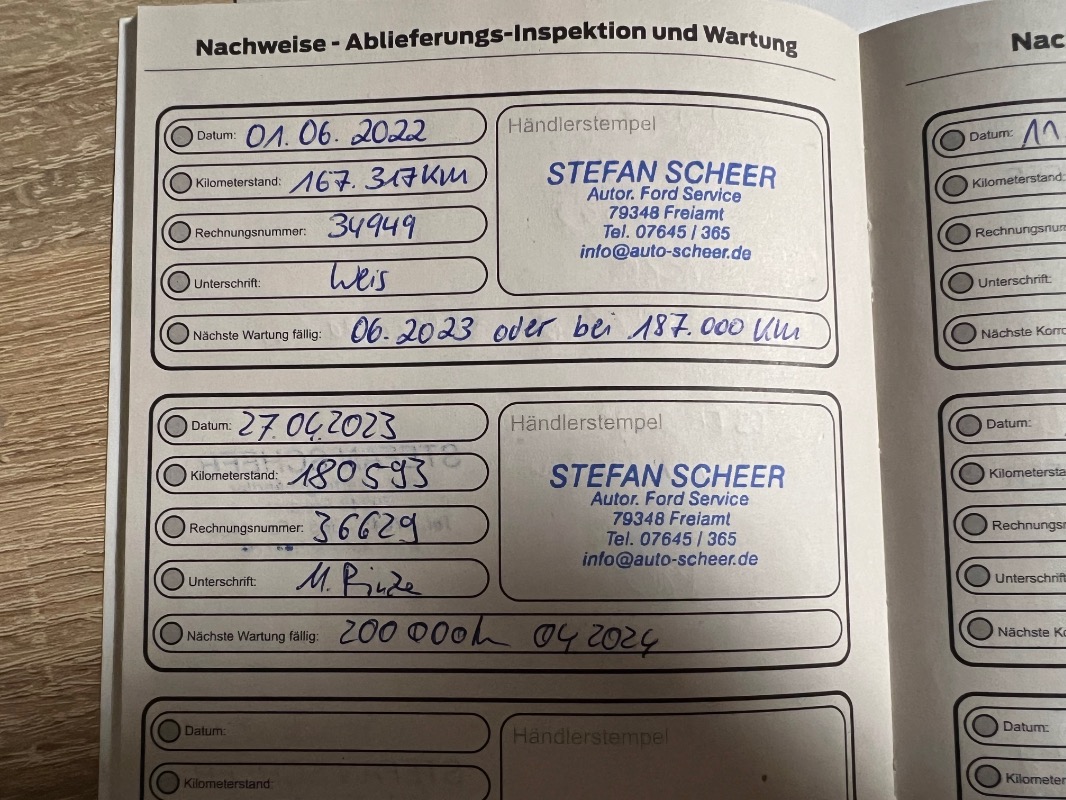 Nachweise - Ablieferungs-Inspektion und Wartung
Datum: 01.06.2022
Kilometerstand: 167.317 Km
Rechnungsnummer: 34949
Unterschrift: Weis
Nächste Wartung fällig: 06.2023 oder bei 187.000 Km
Händlerstempel
STEFAN SCHEER
Autor. Ford Service
79348 Freiamt
Tel. 07645 / 365
info@auto-scheer.de
Datum: 27.04.2023
Kilometerstand: 180593
Rechnungsnummer: 36629
Unterschrift: M.
Nächste Wartung fällig: 200 000 04 2024
Händlerstempel
STEFAN SCHEER
Autor. Ford Service
79348 Freiamt
Tel. 07645 / 365
info@auto-scheer.de
Datum:
Kilometerstand:
Händlerstempel
Nac
Datum: 11.
Kilometerstand:
Rechnungsnum
Unterschrift:
Nächste Korro
Datum:
Kilometersta
Rechnungsn
Unterschrift
Nächste Ko
Datum:
Kilometer